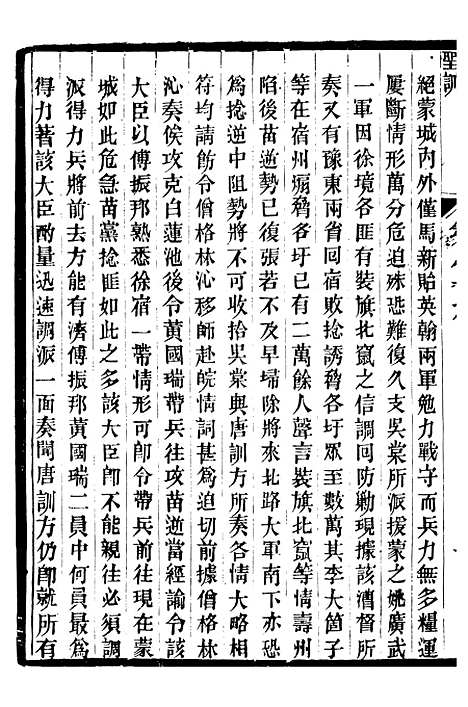 聖訓
絕蒙城內外僅馬新貽英翰兩軍勉力戰守而兵力無多糧運
屢斷情形萬分危迫殊恐難復久支吳棠所派援蒙之姚廣武
一軍因徐境各匪有裝旗北竄之信調回防勦現據該漕督所
奏又有豫東兩省回宿敗捻誘脅各圩眾至數萬其李大箇子
等在宿州煽脅各圩已有二萬餘人聲言裝旗北竄等情壽州
陷後苗逆勢已復張若不早埽除將來北路大軍南下亦恐
為捻逆中阻勢將不可收拾吳棠與唐訓方所奏各情大略相
符均請飭令僧格林沁移師赴皖情詞甚為迫切前據僧格林
沁奏俟攻克白蓮池後令黃國瑞帶兵往攻苗逆當經諭令該
大臣以傅振邦熟悉徐宿一帶情形可即令帶兵前往現在蒙
城如此危急苗黨捻匪如此之多該大臣即不能親往必須調
派得力兵將前去方能有濟傅振邦黃國瑞二員中何員最為
得力著該大臣酌量迅速調派一面奏聞唐訓方仍即就所有